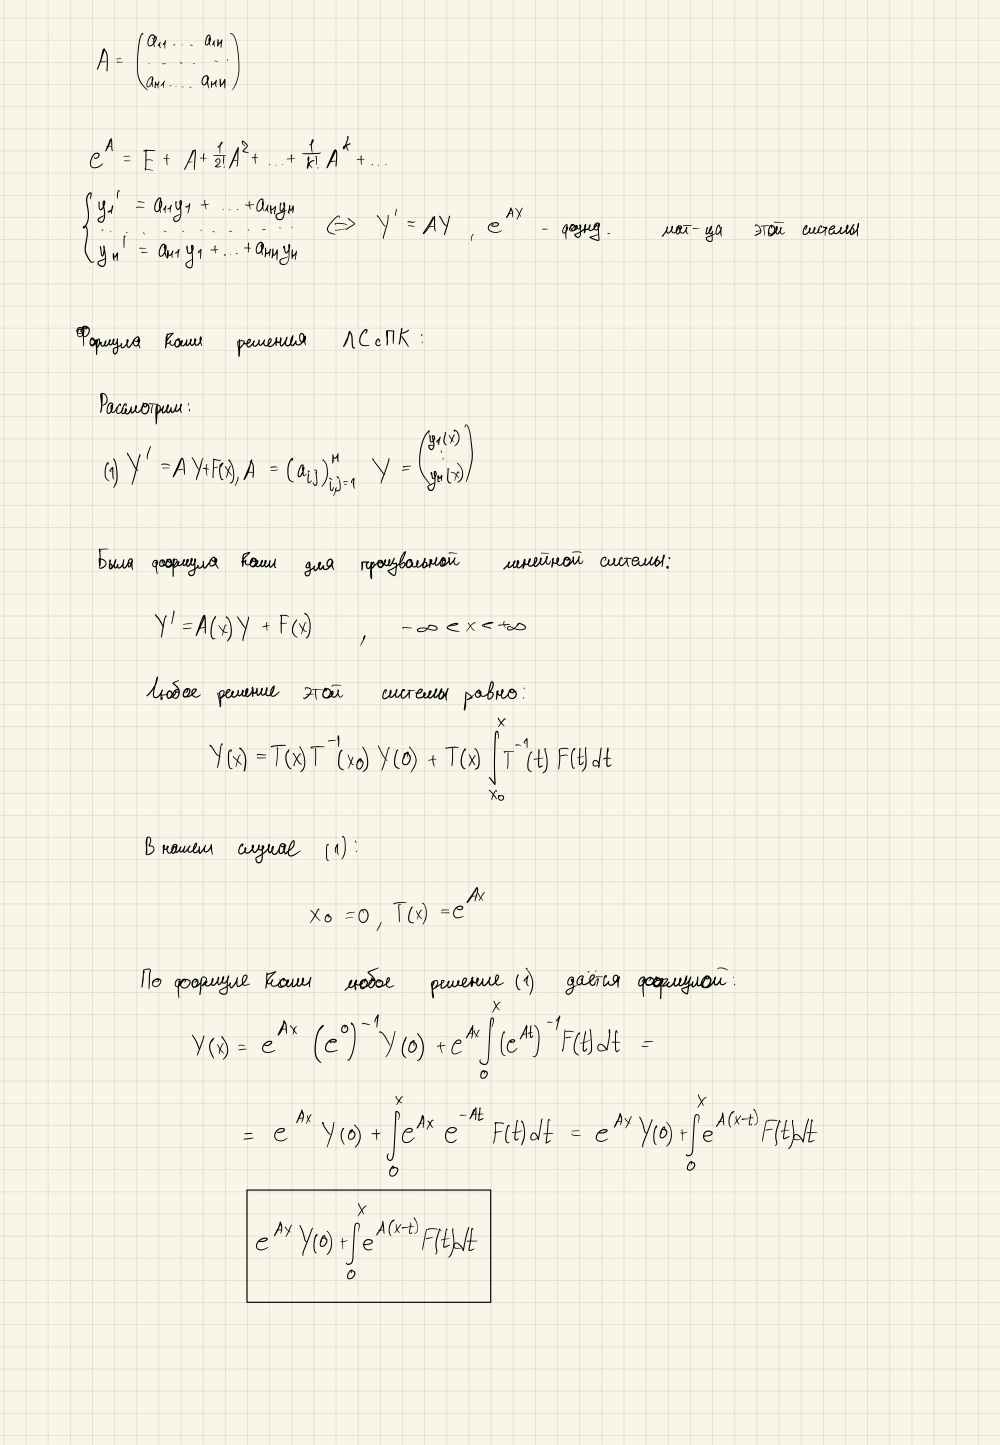 A = (a₁₁ ... a₁н
. . . . .
aн₁ ... aнн)
e^A = E + A + 1/2! A² + ... + 1/k! A^k + ...
{ y₁' = a₁₁y₁ + ... + a₁нyн
. . . . . . . . . .
yн' = aн₁y₁ + ... + aннyн ⇔ Y' = AY , e^{AX} - фунд. мат-ца этой системы
Формула Коши решения ЛС с ПК :
Рассмотрим :
(1) Y' = AY + F(x), A = (a_{ij})_{i,j=1}^н Y = (y₁(x)
:
yн(x))
Была формула Коши для произвольной линейной системы:
Y' = A(x) Y + F(x) , -∞ < x < +∞
Любое решение этой системы равно:
Y(x) = T(x) T^{-1}(x₀) Y(0) + T(x) ∫_{x₀}^{x} T^{-1}(t) F(t) dt
В нашем случае (1) :
x₀ = 0 , T(x) = e^{Ax}
По формуле Коши любое решение (1) даётся формулой:
Y(x) = e^{Ax} (e^0)^{-1} Y(0) + e^{Ax} ∫_{0}^{x} (e^{At})^{-1} F(t) dt =
= e^{Ax} Y(0) + ∫_{0}^{x} e^{Ax} e^{-At} F(t) dt = e^{Ax} Y(0) + ∫_{0}^{x} e^{A(x-t)} F(t) dt
e^{Ax} Y(0) + ∫_{0}^{x} e^{A(x-t)} F(t) dt